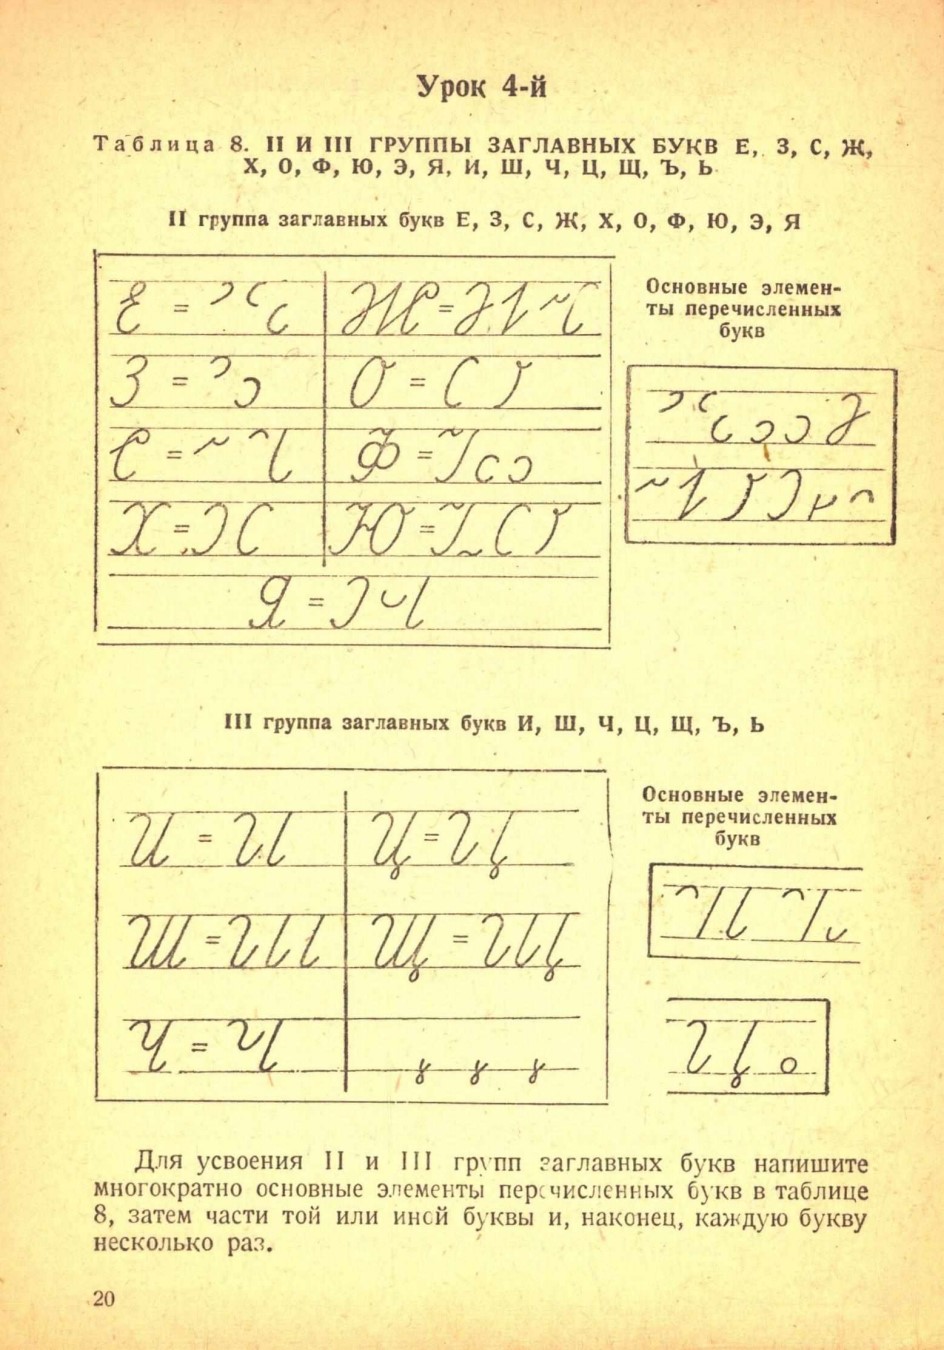 Урок 4-й
Таблица 8. II И III ГРУППЫ ЗАГЛАВНЫХ БУКВ Е, З, С, Ж,
Х, О, Ф, Ю, Э, Я, И, Ш, Ч, Ц, Щ, Ъ, Ь
II группа заглавных букв Е, З, С, Ж, Х, О, Ф, Ю, Э, Я
Е =
Ж =
З =
О =
С =
Ф =
Х =
Ю =
Я =
Основные элемен-
ты перечисленных
букв
III группа заглавных букв И, Ш, Ч, Ц, Щ, Ъ, Ь
И =
Ц =
Ш =
Щ =
Ч =
Основные элемен-
ты перечисленных
букв
Для усвоения II и III групп заглавных букв напишите
многократно основные элементы перечисленных букв в таблице
8, затем части той или иной буквы и, наконец, каждую букву
несколько раз.
20